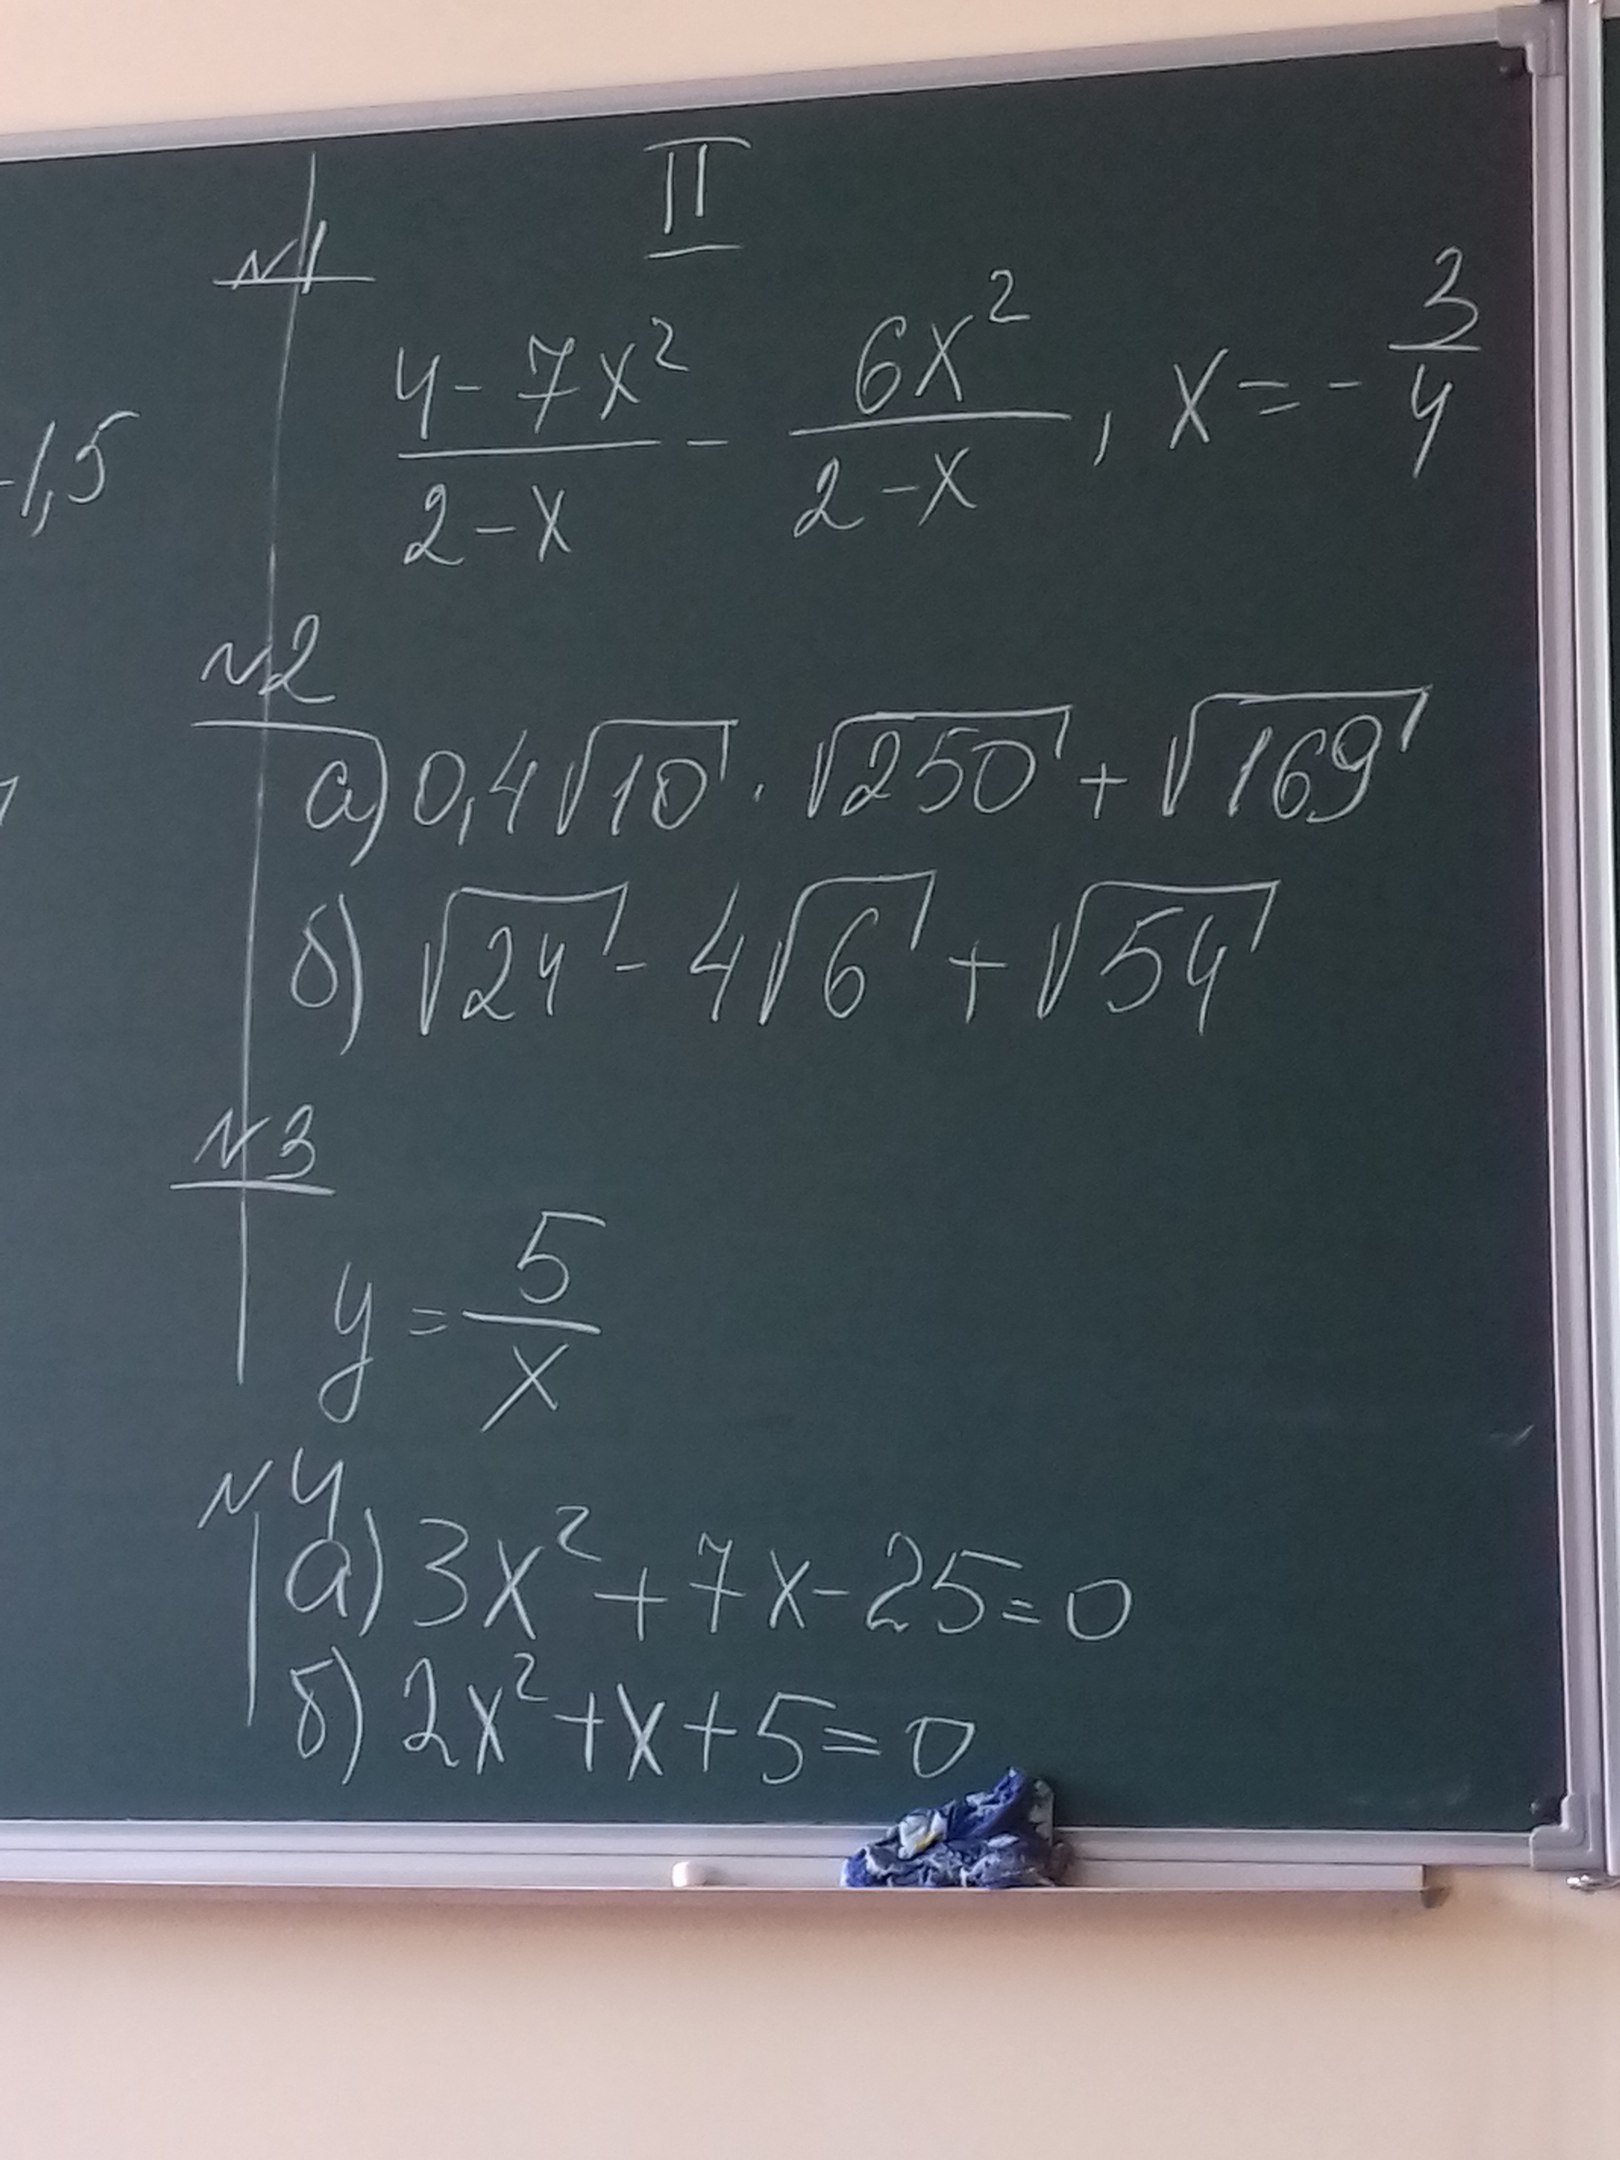 II
-1,5
N1
(4-7x²)/(2-x) - (6x²)/(2-x), x = -3/4
N2
а) 0,4√10 · √250 + √169
б) √24 - 4√6 + √54
N3
y = 5/x
N4
а) 3x² + 7x - 25 = 0
б) 2x² + x + 5 = 0